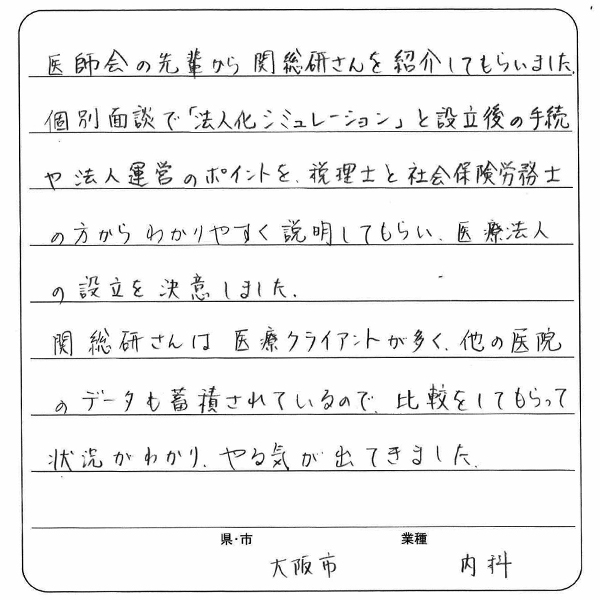 医師会の先輩から関総研さんを紹介してもらいました。
個別面談で「法人化シミュレーション」と設立後の手続
や法人運営のポイントを、税理士と社会保険労務士
の方からわかりやすく説明してもらい、医療法人
の設立を決意しました。
関総研さんは医療クライアントが多く、他の医院
のデータも蓄積されているので、比較をしてもらって
状況がわかり、やる気が出てきました。
県・市 業種
大阪市 内科